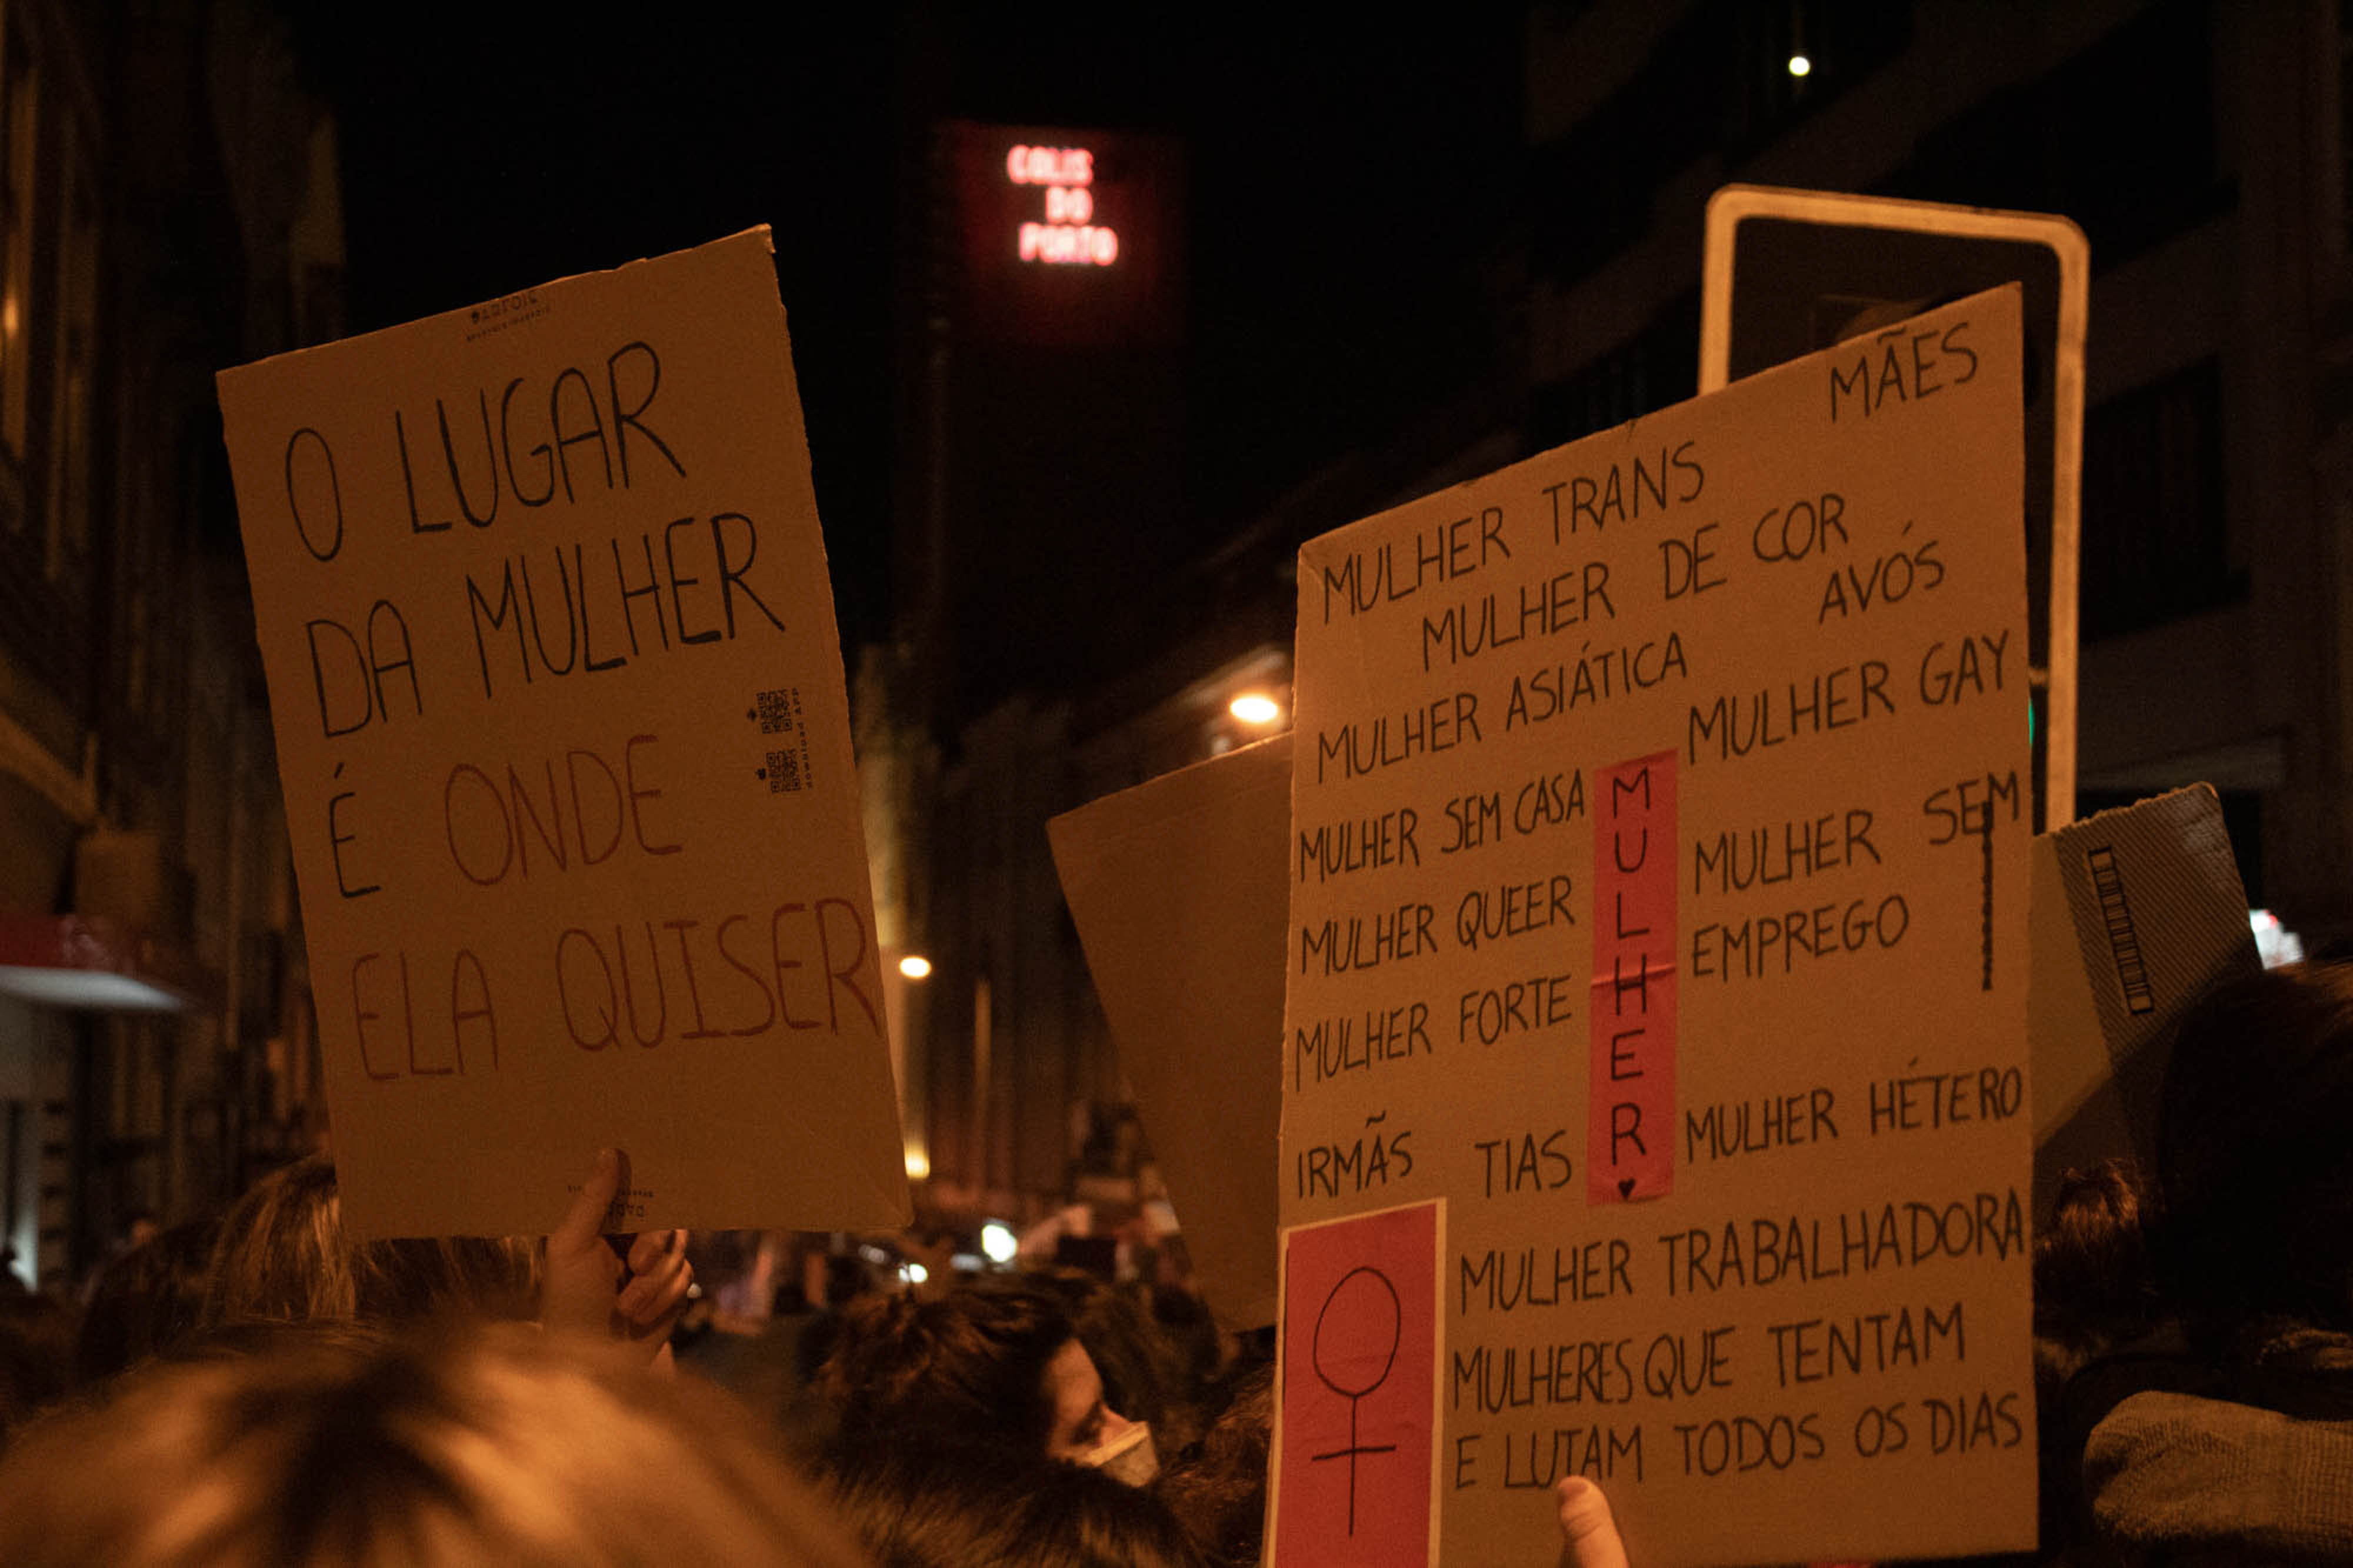 COLIS
DO
PORTO
O LUGAR
DA MULHER
É ONDE
ELA QUISER
download APP
MÃES
MULHER TRANS
MULHER DE COR
AVÓS
MULHER ASIÁTICA
MULHER GAY
MULHER SEM CASA
MULHER QUEER
MULHER FORTE
MULHER
MULHER SEM
EMPREGO
IRMÃS TIAS
MULHER HÉTERO
MULHER TRABALHADORA
MULHERES QUE TENTAM
E LUTAM TODOS OS DIAS